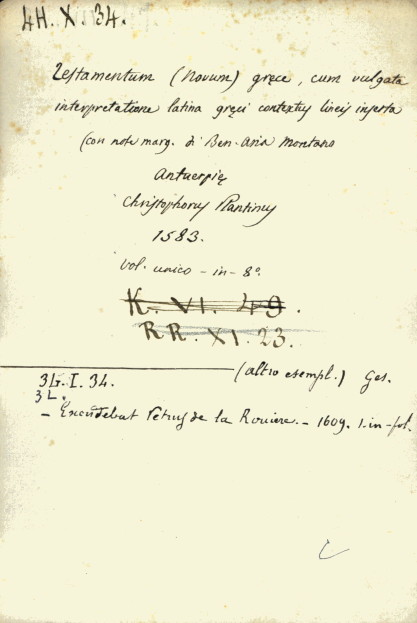 4H. X. 34.
Testamentum (Novum) gręce, cum vulgata
interpretatione latina gręci contextus lineis inserta
(con note marg. di Ben. Aria Montano
Antuerpię
Christophorus Plantinus
1583.
vol. unico - in - 8º.
K. VI. 49.
RR. XI. 23.
(altro esempl.) Ges.
3G. I. 34.
3L.
- Excudebat Petrus de la Rouiere. - 1609. 1-in-fol.